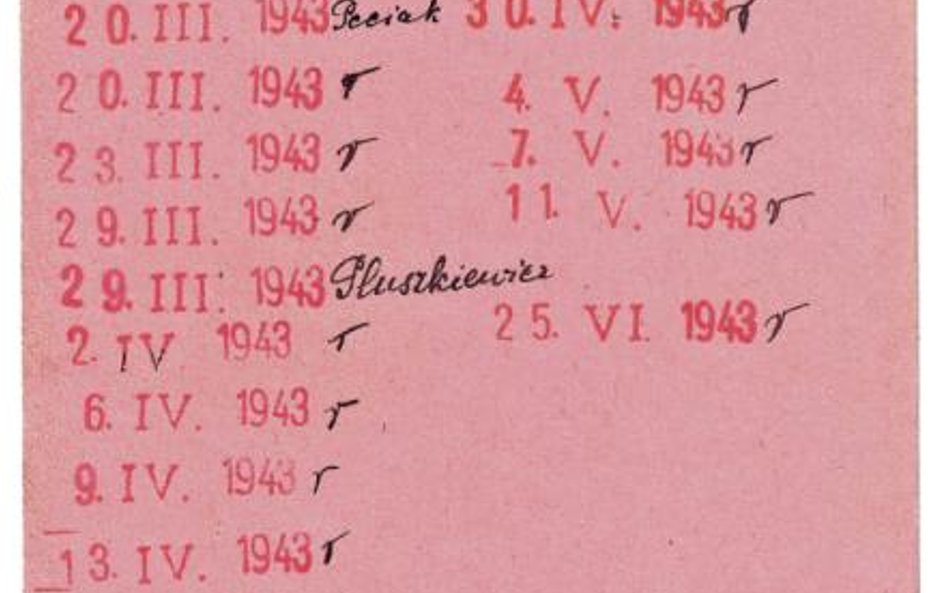 20. III. 1943 Peciak
20. III. 1943 r
23. III. 1943 r
29. III. 1943 r
29. III. 1943 Pluszkiewicz
2. IV 1943 r
6. IV. 1943 r
9. IV. 1943 r
13. IV. 1943 r
30. IV. 1943 r
4. V. 1943 r
7. V. 1943 r
11. V. 1943 r
25. VI. 1943 r